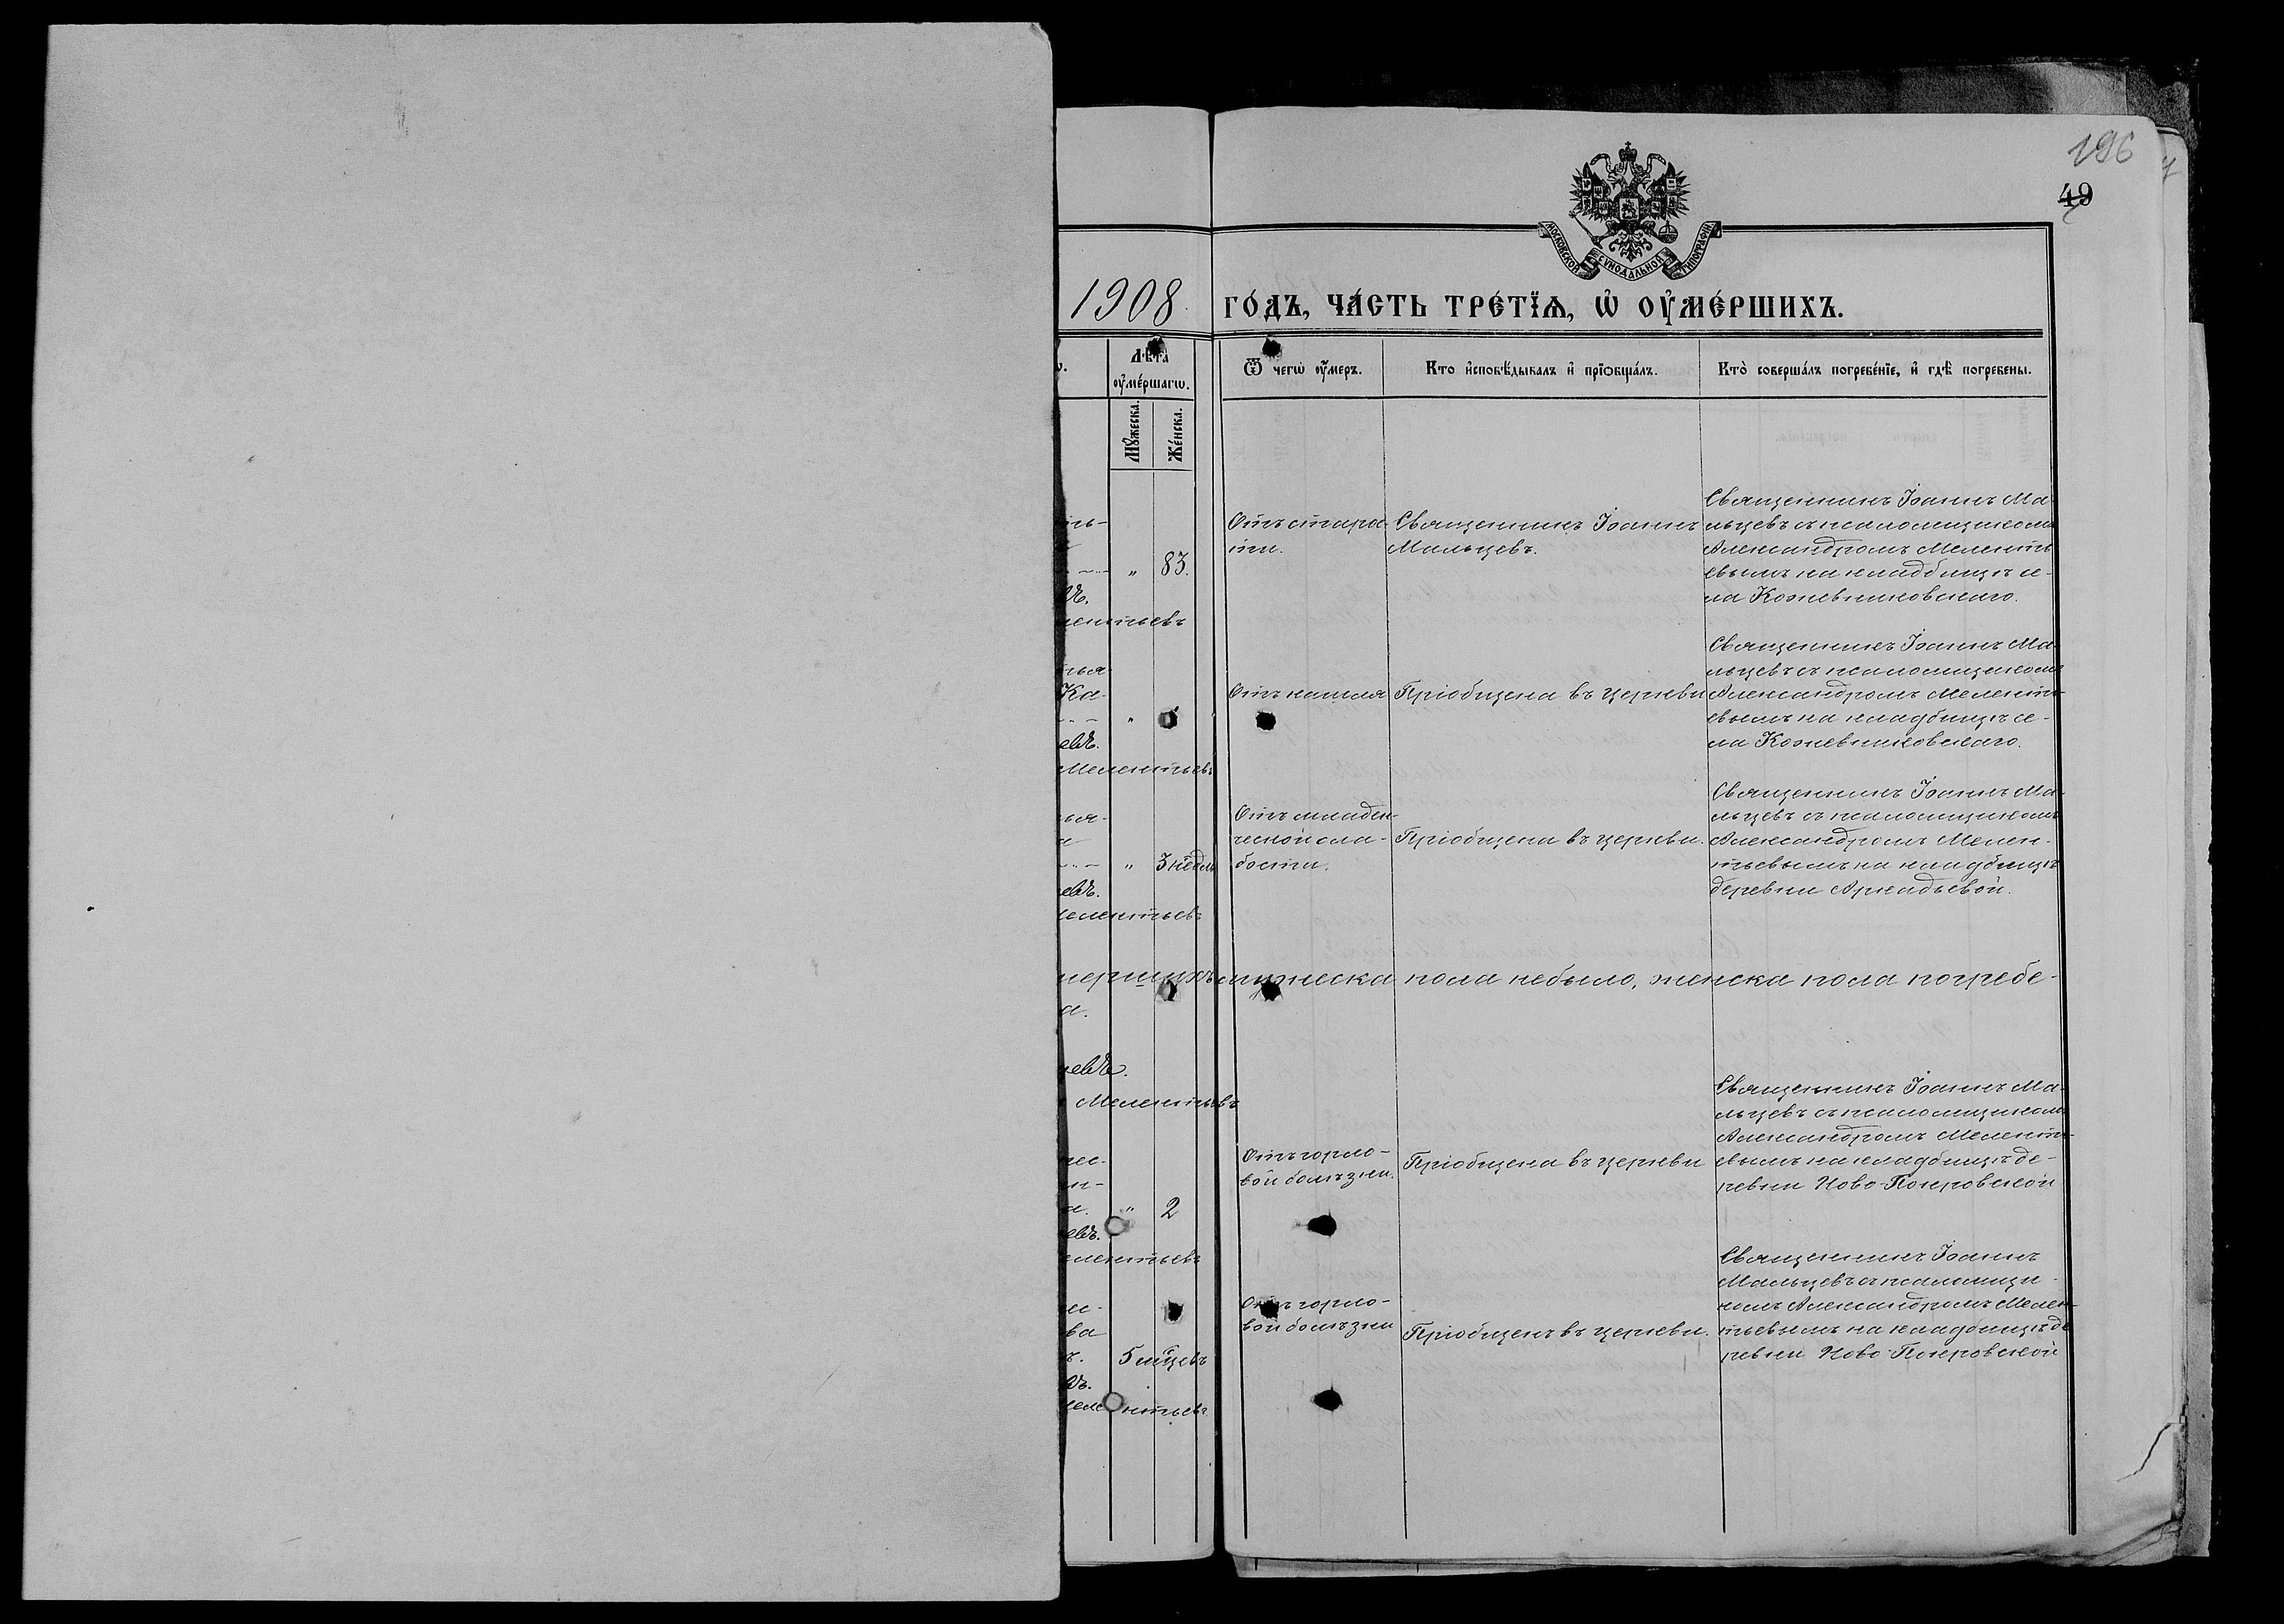 196
49
МОСКОВСКОЙ СѴНОДАЛЬНОЙ ТИПОГРАФІИ
1908 го́дъ, ча́сть тре́тїѧ, ѡ҆ ᲂу҆ме́ршихъ.
Лѣ́та ᲂу҆ме́ршагѡ.
Мꙋ́жеска.
Же́нска.
Ѿ чегѡ̀ ᲂу҆́меръ.
Кто̀ и҆сповѣ́дывалъ и҆ прїѡбща́лъ.
Кто̀ соверша́лъ погребе́нїе, и҆ гдѣ̀ погребены.
" 83.
ментьевъ
Отъ старо-
сти.
Священникъ Іоаннъ
Мальцевъ.
Священникъ Іоаннъ Ма-
льцевъ съ псаломщикомъ
Александромъ Меленть
евымъ на кладбищѣ се-
ла Кожевниковскаго.
Ка-
"
евъ.
Мелентьевъ
Отъ кашля
Пріобщена въ церкви
Священникъ Іоаннъ Ма-
льцевъ съ псаломщикомъ
Александромъ Мелент-
евымъ на кладбищѣ се-
ла Кожевниковскаго.
" 3 недѣль
евъ.
мелентьевъ
Отъ младен-
ческой сла-
бости.
Пріобщена въ церкви.
Священникъ Іоаннъ Ма-
льцевъ съ псаломщикомъ
Александромъ Мелен-
тьевымъ на кладбищѣ
деревни Аркадьевой.
мершихъ мужеска пола небыло, женска пола погребе-
а.
евъ.
Мелентьевъ
" 2
евъ.
елентьевъ
Отъ горло-
вой болѣзни.
Пріобщена въ церкви
Священникъ Іоаннъ Ма-
льцевъ съ псаломщикомъ
Александромъ Мелент-
евымъ на кладбищѣ де-
ревни Ново-Покровской
ва
5 мѣсцевъ
въ.
мелентьевъ
Отъ горло-
вой болѣзни
Пріобщенъ въ церкви.
Священникъ Іоаннъ
Мальцевъ съ псаломщи-
комъ Александромъ Мелен-
тьевымъ на кладбищѣ де
ревни Ново-Покровской